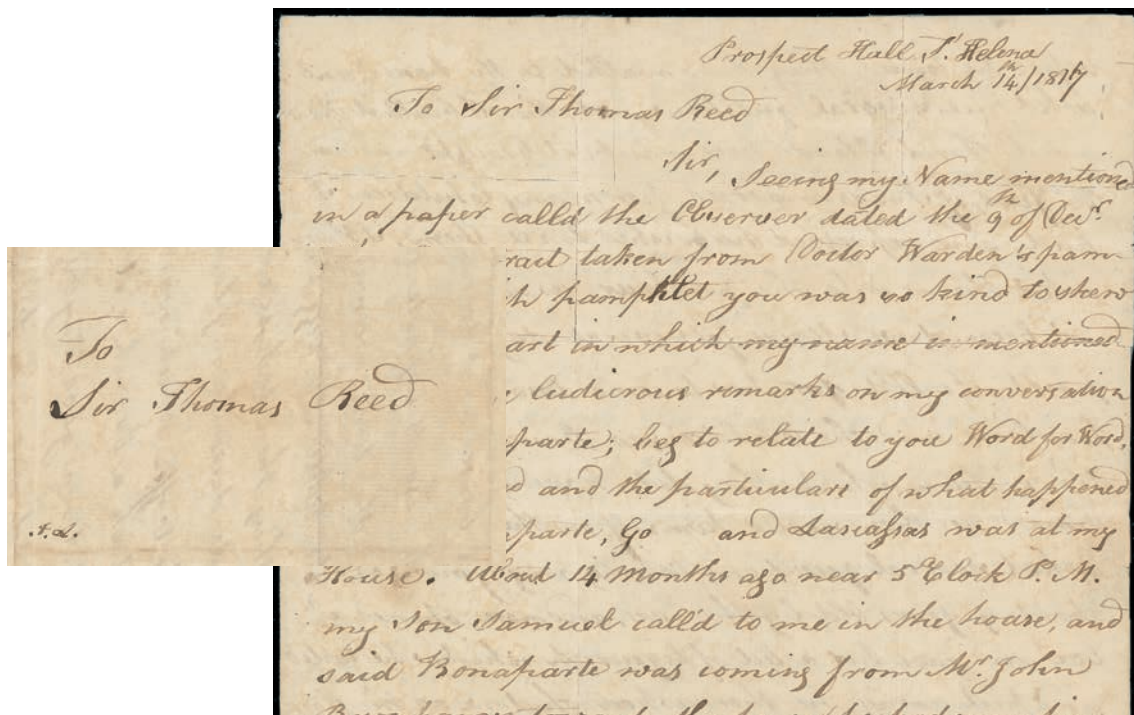 Prospect Hall St. Helena
March 14th/1817
To Sir Thomas Reed
Sir, Seeing my Name mentioned
in a paper calld the Observer dated the 9th of Decr.
ract taken from Doctor Warden's pam-
h pamphlet you was so kind to shew
art in which my name is mentioned
ludicrous remarks on my conversation
parte; beg to relate to you Word for Word,
d and the particulars of what happened
parte, Go and Lascassas was at my
House. About 14 Months ago near 5 o'Clock P.M.
my Son Samuel call'd to me in the house, and
said Bonaparte was coming from Mr. John
To
Sir Thomas Reed